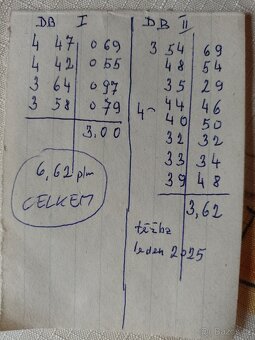 DB I
4 47 069
4 42 055
3 64 097
3 58 079
3,00
6,62 plm
CELKEM
DB II
3 54 69
48 54
35 29
4 44 46
40 50
32 32
33 34
39 48
3,62
těžba
leden 2025